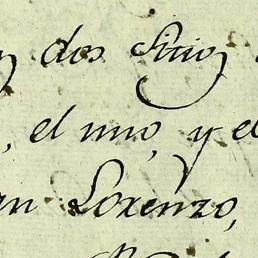 dos Sitios
, el uno, y el
an Lorenzo,